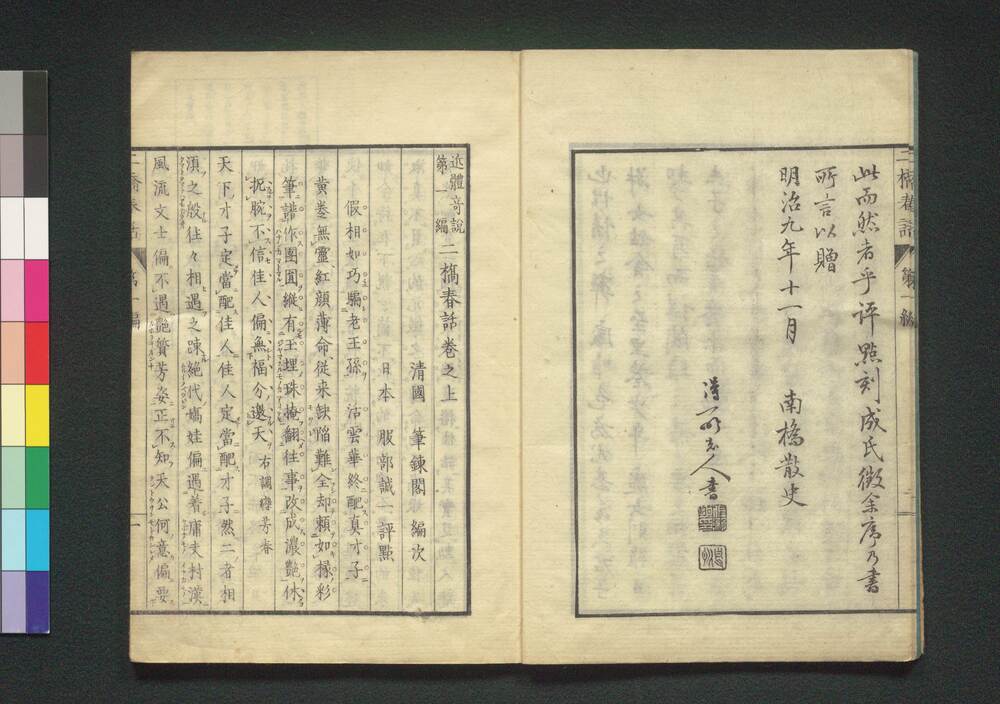 此而然者乎評點刻成氏徵余序乃書
所言以贈
明治九年十一月　南橋散史
近體奇說
第一編
二橋春話卷之上
清國　筆鍊閣　編次
日本　服部誠一評點
假相如巧騙老王孫　活雲華終配真才子
黃卷無靈紅顏薄命從来缺陷難全却賴如椽彩
筆譜作團圓縱有玉埋珠掩翻往事改成濃艷休
扼腕不信佳人偏無福分邀天　右調
天下才子定當配佳人佳人定當配才子然二者相
須之殷往々相遇之踈絕代嬌娃偏遇着庸夫村漢
風流文士偏不遇艷質芳姿正不知天公何意偏要
第一編
一